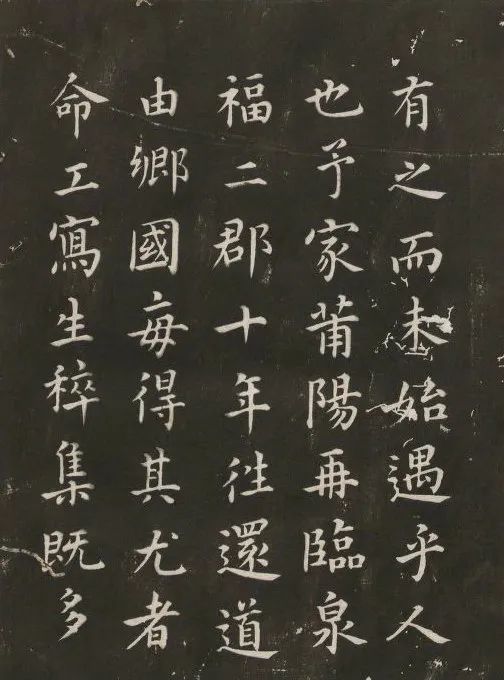 有之而未始遇乎人
也予家莆陽再臨泉
福二郡十年往還道
由鄉國每得其尤者
命工寫生稡集既多